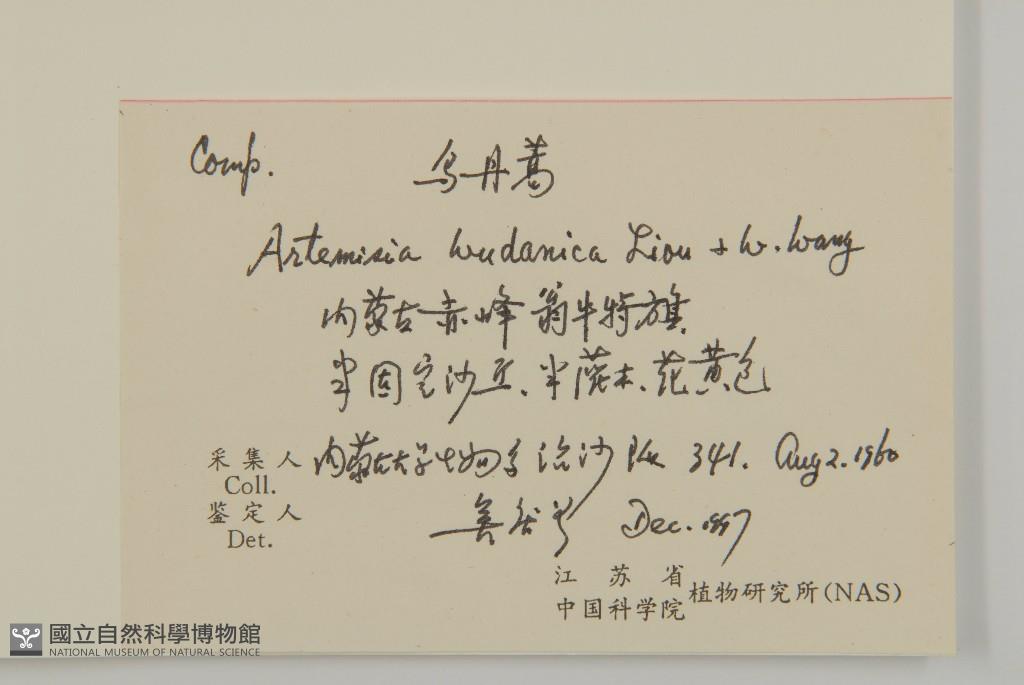 Comp. 乌丹蒿
Artemisia wudanica Liou & W. Wang
内蒙古赤峰翁牛特旗
半固定沙丘、半灌木、花黄色
采集人 内蒙古大学生物系治沙队 341. Aug 2. 1960
Coll.
鉴定人 Dec. 1997
Det.
江苏省
中国科学院 植物研究所(NAS)
國立自然科學博物館
NATIONAL MUSEUM OF NATURAL SCIENCE